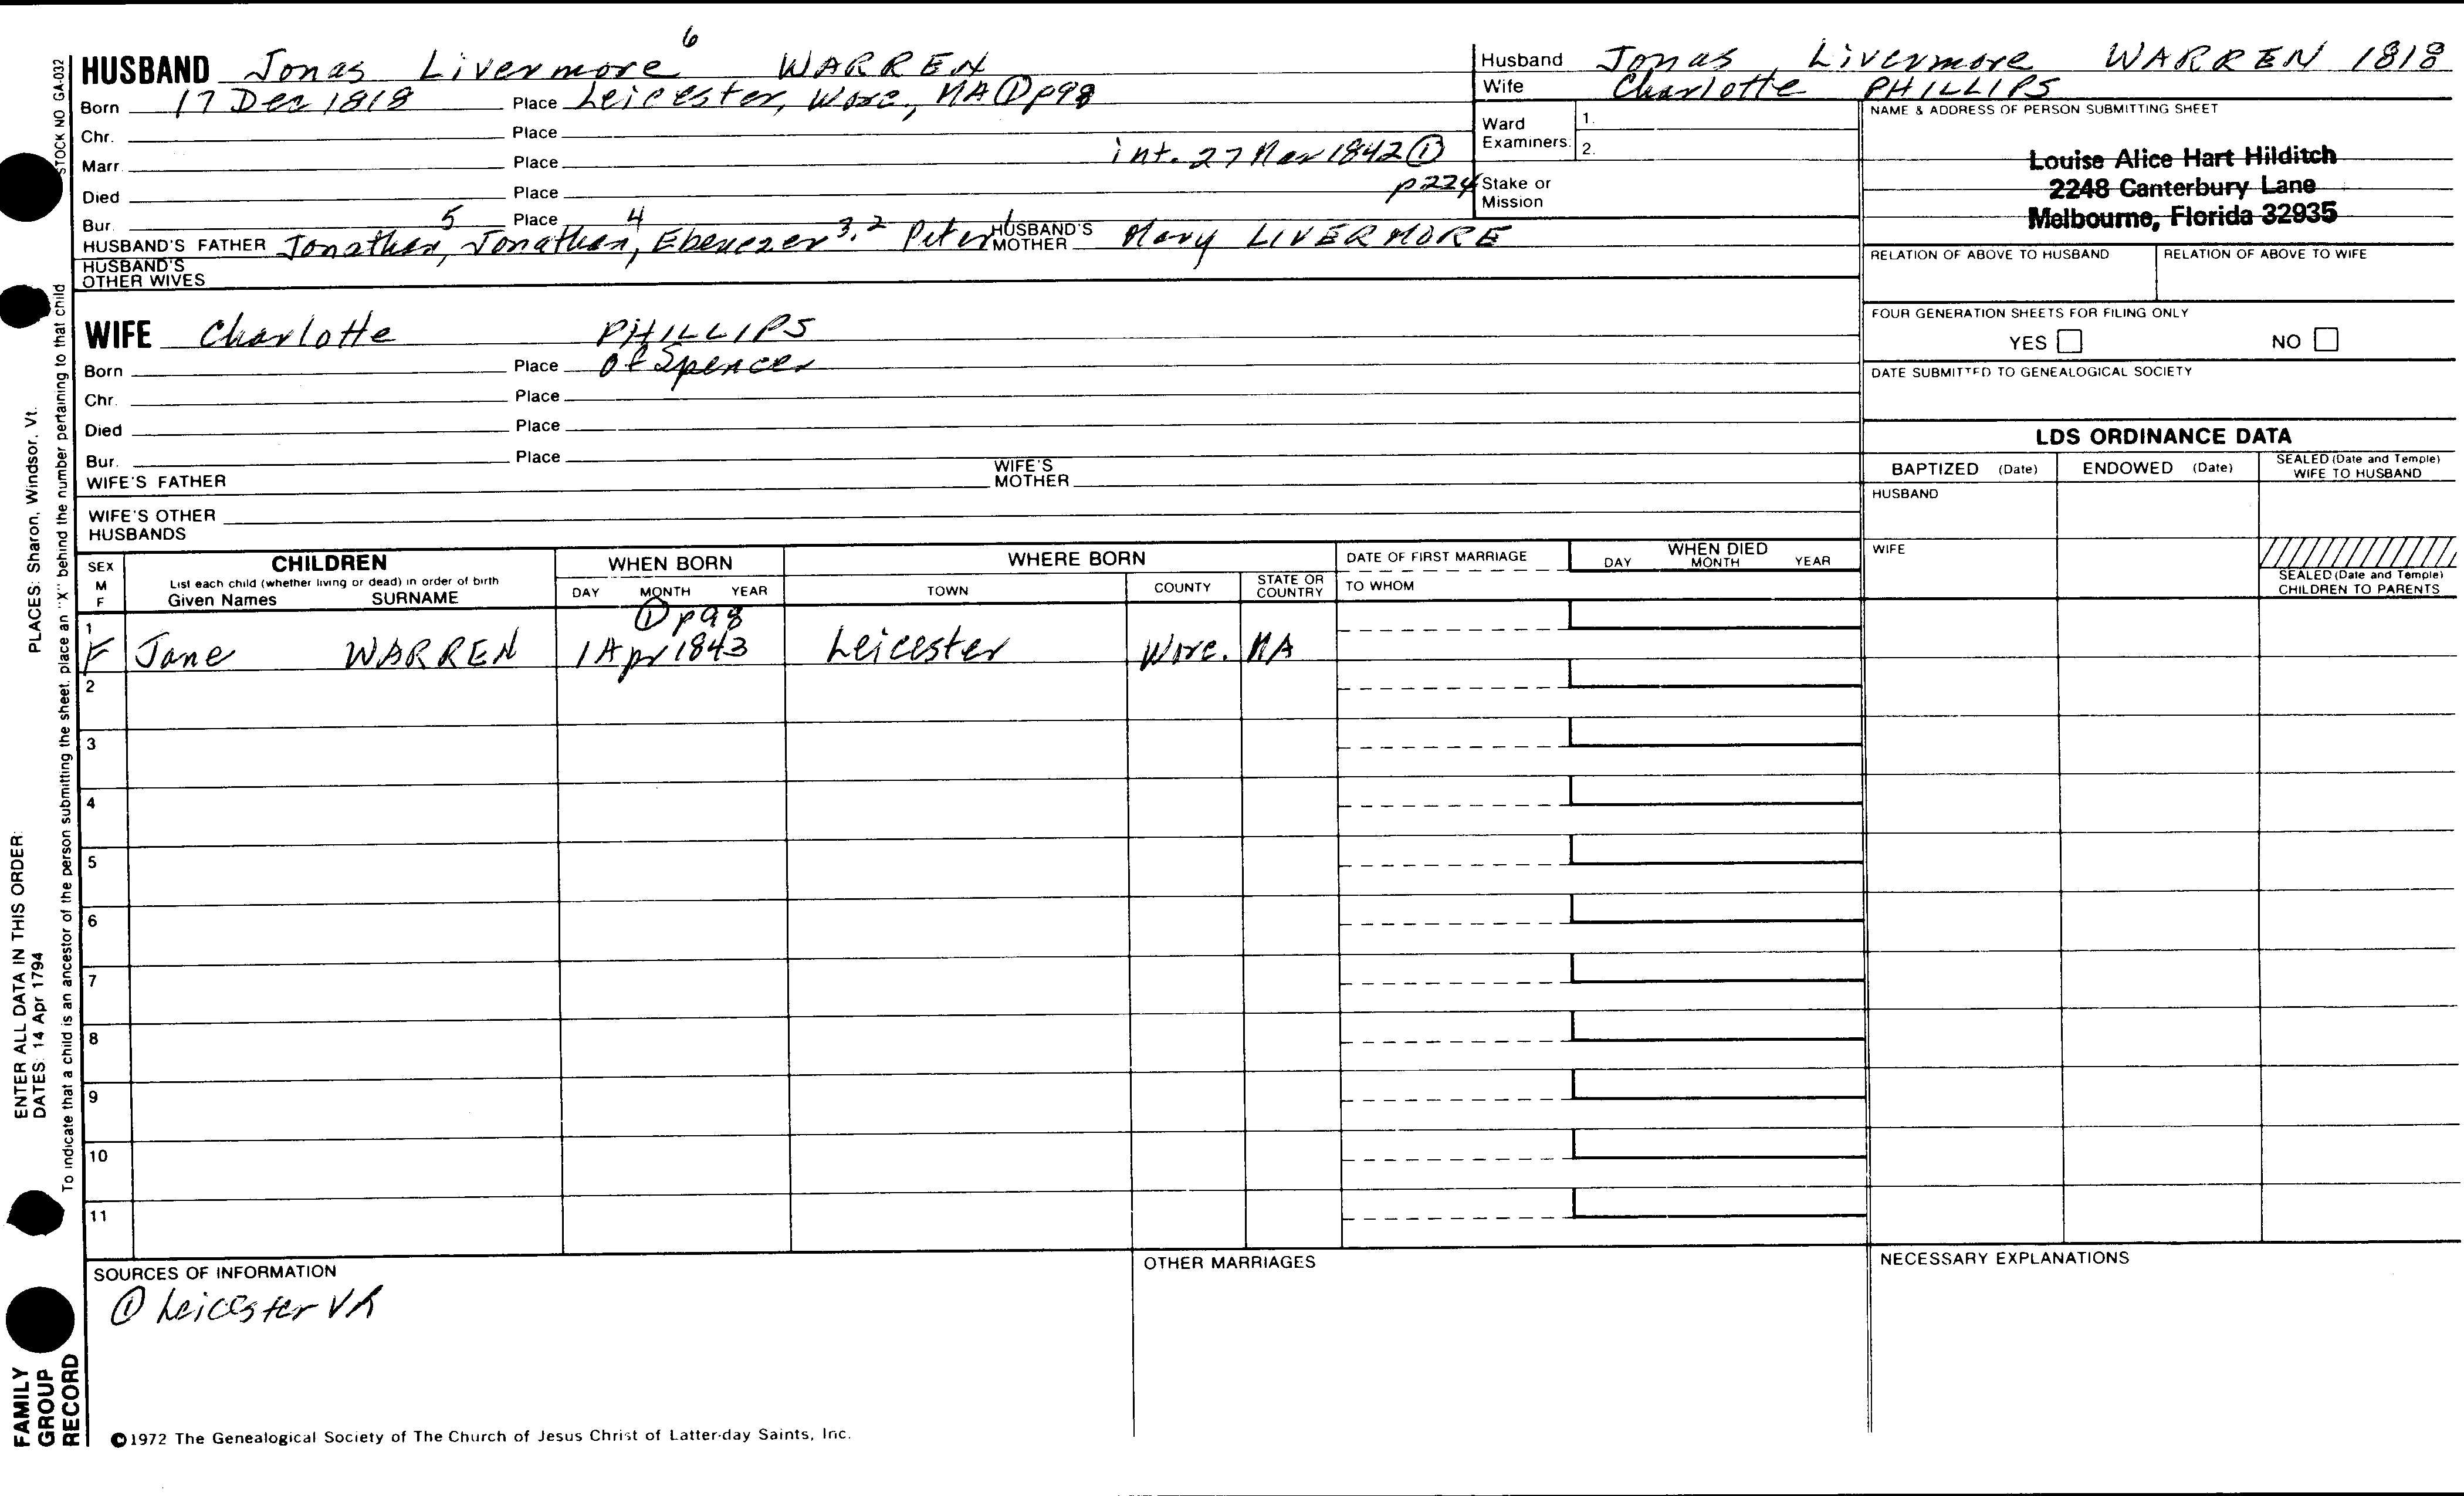 HUSBAND Jonas Livermore 6 WARREN
Born 17 Dec 1818 Place Leicester, Worc., MA ① p98
Chr. Place
Marr. Place int. 27 Mar 1842 ①
Died Place p224
Bur. Place
HUSBAND'S FATHER Jonathan 5, Jonathan 4, Ebenezer 3, 2 Peter 1 HUSBAND'S MOTHER Mary LIVERMORE
HUSBAND'S OTHER WIVES
WIFE Charlotte PHILLIPS
Born Place of Spencer
Chr. Place
Died Place
Bur. Place
WIFE'S FATHER WIFE'S MOTHER
WIFE'S OTHER HUSBANDS
Husband Jonas Livermore WARREN 1818
Wife Charlotte PHILLIPS
Ward Examiners: 1.
2.
Stake or Mission
NAME & ADDRESS OF PERSON SUBMITTING SHEET
Louise Alice Hart Hilditch
2248 Canterbury Lane
Melbourne, Florida 32935
RELATION OF ABOVE TO HUSBAND RELATION OF ABOVE TO WIFE
FOUR GENERATION SHEETS FOR FILING ONLY
YES NO
DATE SUBMITTED TO GENEALOGICAL SOCIETY
LDS ORDINANCE DATA
BAPTIZED (Date) ENDOWED (Date) SEALED (Date and Temple) WIFE TO HUSBAND
HUSBAND
WIFE
SEALED (Date and Temple) CHILDREN TO PARENTS
SEX M F
CHILDREN
List each child (whether living or dead) in order of birth
Given Names SURNAME
WHEN BORN
DAY MONTH YEAR
WHERE BORN
TOWN COUNTY STATE OR COUNTRY
DATE OF FIRST MARRIAGE
TO WHOM
WHEN DIED
DAY MONTH YEAR
① p98
1
F Jane WARREN 1 Apr 1843 Leicester Worc. MA
2
3
4
5
6
7
8
9
10
11
SOURCES OF INFORMATION
① Leicester VR
OTHER MARRIAGES
NECESSARY EXPLANATIONS
©1972 The Genealogical Society of The Church of Jesus Christ of Latter-day Saints, Inc.
STOCK NO GA-032
To indicate that a child is an ancestor of the person submitting the sheet, place an "X" behind the number pertaining to that child
PLACES: Sharon, Windsor, Vt.
ENTER ALL DATA IN THIS ORDER:
DATES: 14 Apr 1794
FAMILY
GROUP
RECORD